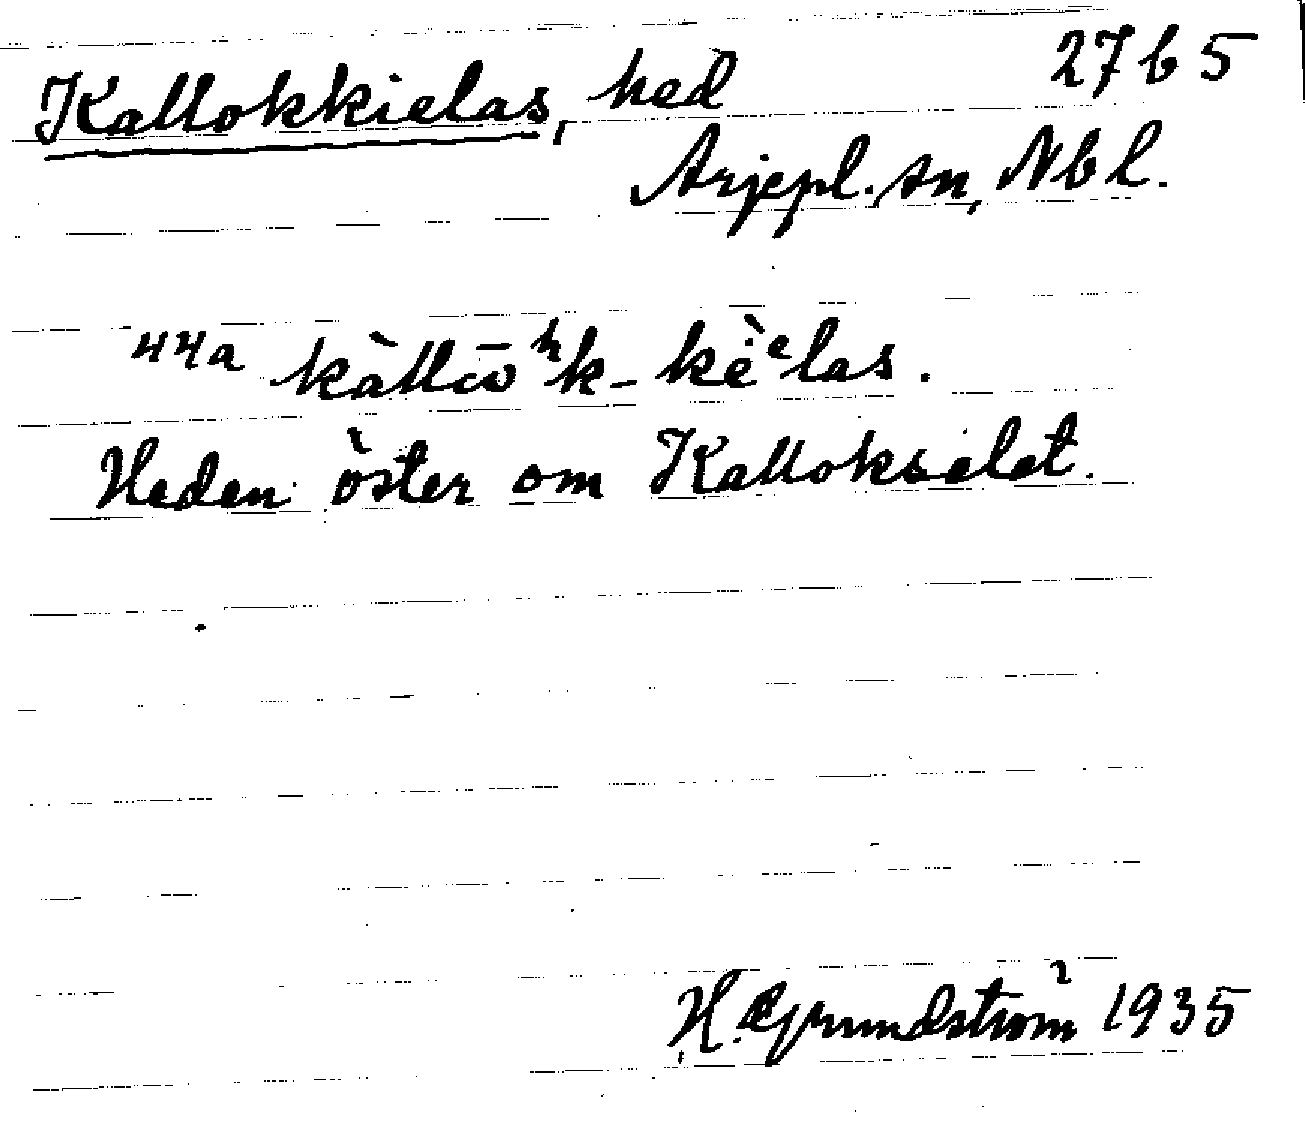 Kallokkielas, hed 27 b 5
Arjepl. sn, Nbl.
44a kàllō ʰk-kèᵉlas.
Heden öster om Kallokselet.
H. Grundström 1935